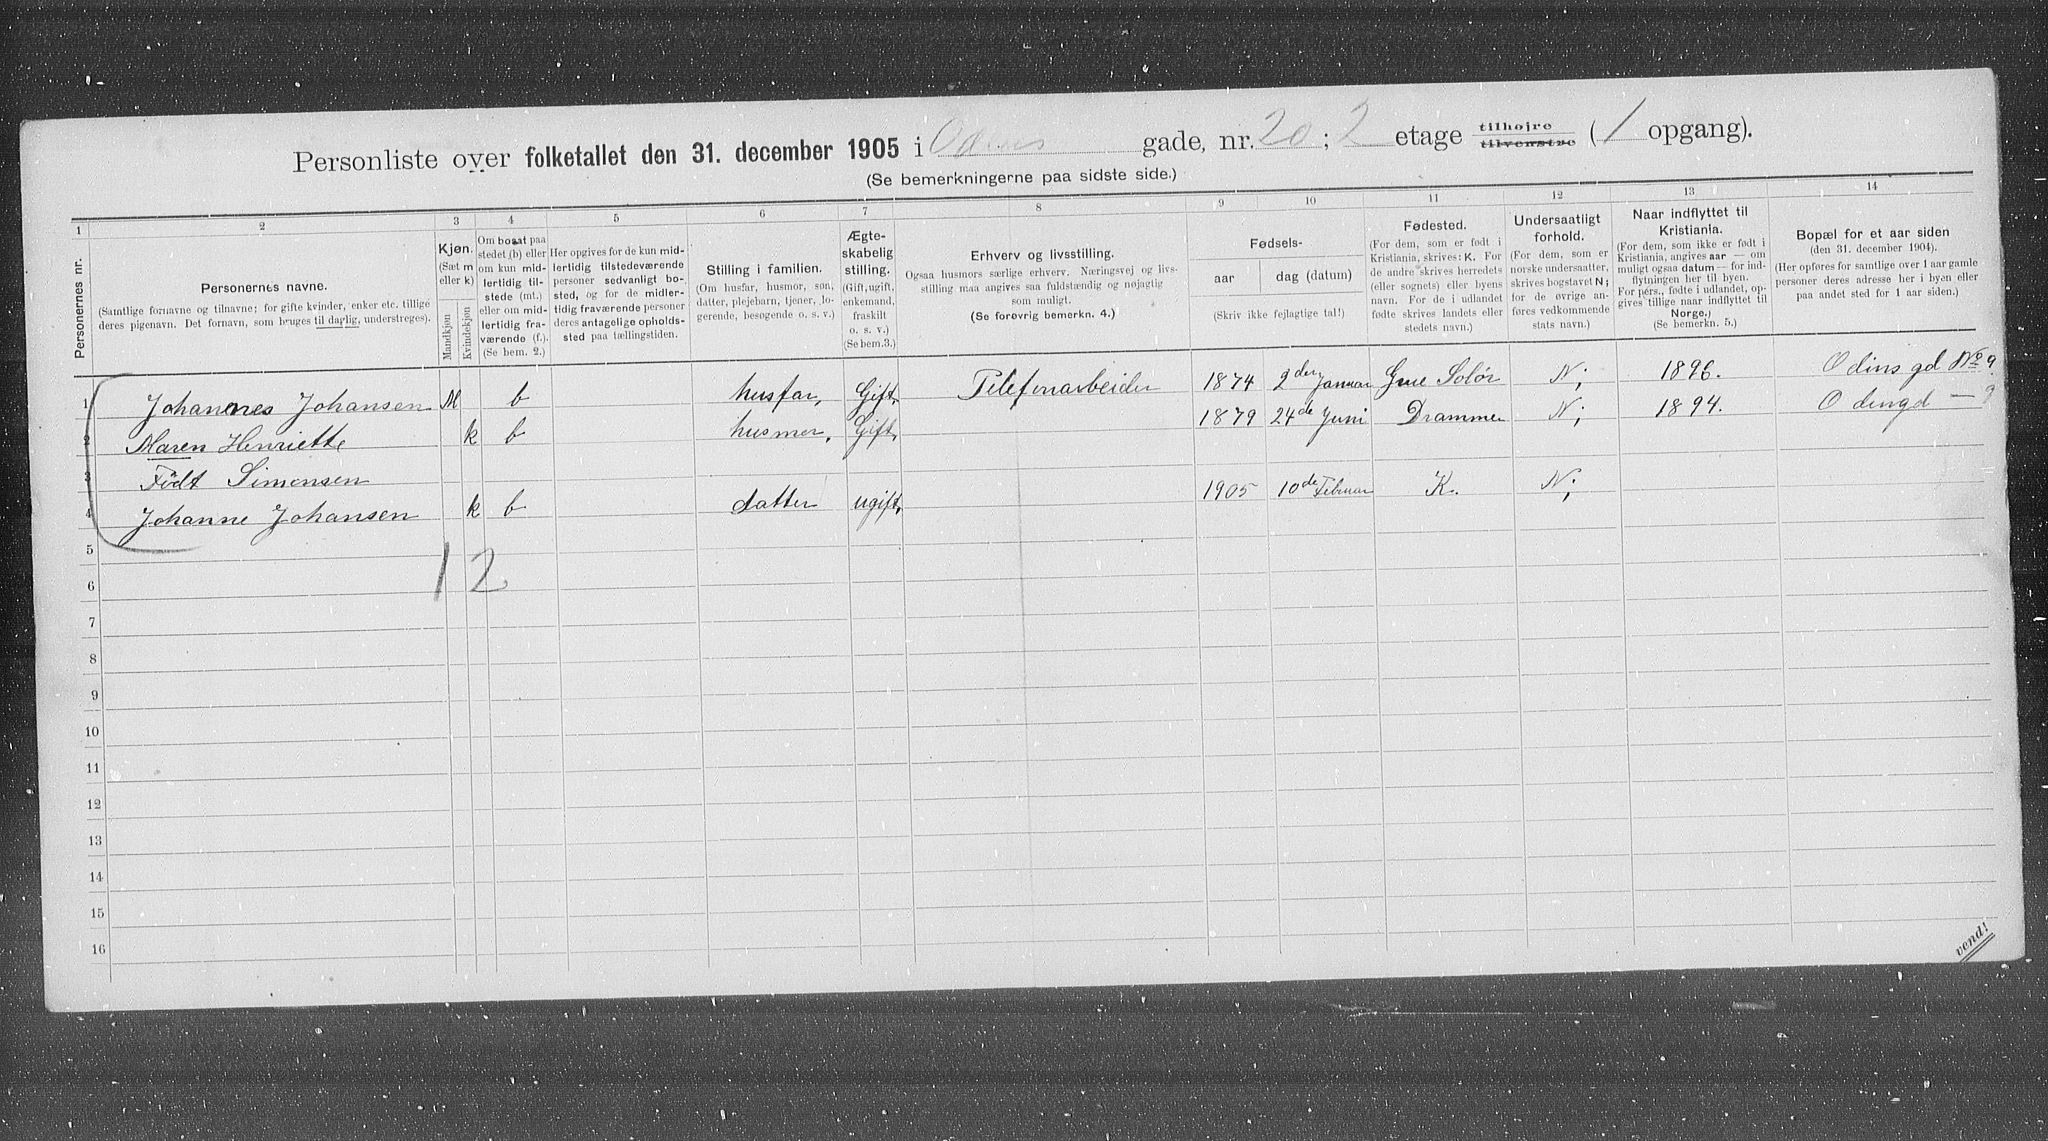 Personliste over folketallet den 31. december 1905 i Odins gade, nr. 20 ; 2 etage tilhøire tilvenstre ( 1 opgang).
(Se bemerkningerne paa sidste side.)
1 2 3 4 5 6 7 8 9 10 11 12 13 14
Personernes nr.
Personernes navne.
(Samtlige fornavne og tilnavne; for gifte kvinder, enker etc. tillige
deres pigenavn. Det fornavn, som bruges til daglig, understreges).
Kjøn.
(Sæt m
eller k).
Mandkjøn
Kvindekjøn
Om bosat paa
stedet (b) eller
om kun mid-
lertidig til-
stede (mt.)
eller om mid-
lertidig fra-
værende (f.).
(Se bem. 2.)
Her opgives for de kun mid-
lertidig tilstedeværende
personer sedvanligt bo-
sted, og for de midler-
tidig fraværende personer
deres antagelige opholds-
sted paa tællingstiden.
Stilling i familien.
(Om husfar, husmor, søn,
datter, plejebarn, tjener, lo-
gerende, besøgende o. s. v.)
Ægte-
skabelig
stilling.
(Gift, ugift,
enkemand,
fraskilt
o. s. v.)
(Se bem.3.)
Erhverv og livsstilling.
Ogsaa husmors særlige erhverv. Næringsvej og livs-
stilling maa angives saa fuldstændig og nøjagtig
som muligt.
(Se forøvrig bemerkn. 4.)
Fødsels-
aar dag (datum)
(Skriv ikke fejlagtige tal!)
Fødested.
(For dem, som er født i
Kristiania, skrives: K. For
de andre skrives herredets
(eller sognets) eller byens
navn. For de i udlandet
fødte skrives landets eller
stedets navn.)
Undersaatligt
forhold.
(For dem, som er
norske undersaatter,
skrives bogstavet N;
for de øvrige an-
føres vedkommende
stats navn.)
Naar indflyttet til
Kristiania.
(For dem, som ikke er født i
Kristiania, angives aar — om
muligt ogsaa datum — for ind-
flytningen her til byen.
For pers., fødte i udlandet, op-
gives tillige naar indflyttet til
Norge.)
(Se bemerkn. 5.)
Bopæl for et aar siden
(den 31. december 1904).
(Her opføres for samtlige over 1 aar gamle
personer deres adresse her i byen eller
paa andet sted for 1 aar siden.)
1 Johannes Johansen M b husfar, Gift, Telefonarbeider 1874 2den Januar Grue Solør N; 1896. Odins gd No 9
2 Maren Henriette k b husmor, Gift, 1879 24de Juni Drammen N; 1894. Odinsgd — 9
3 Født Simensen
4 Johanne Johansen k b datter ugift, 1905 10de Februar K. N;
5
1 2
6
7
8
9
10
11
12
13
14
15
16
vend!